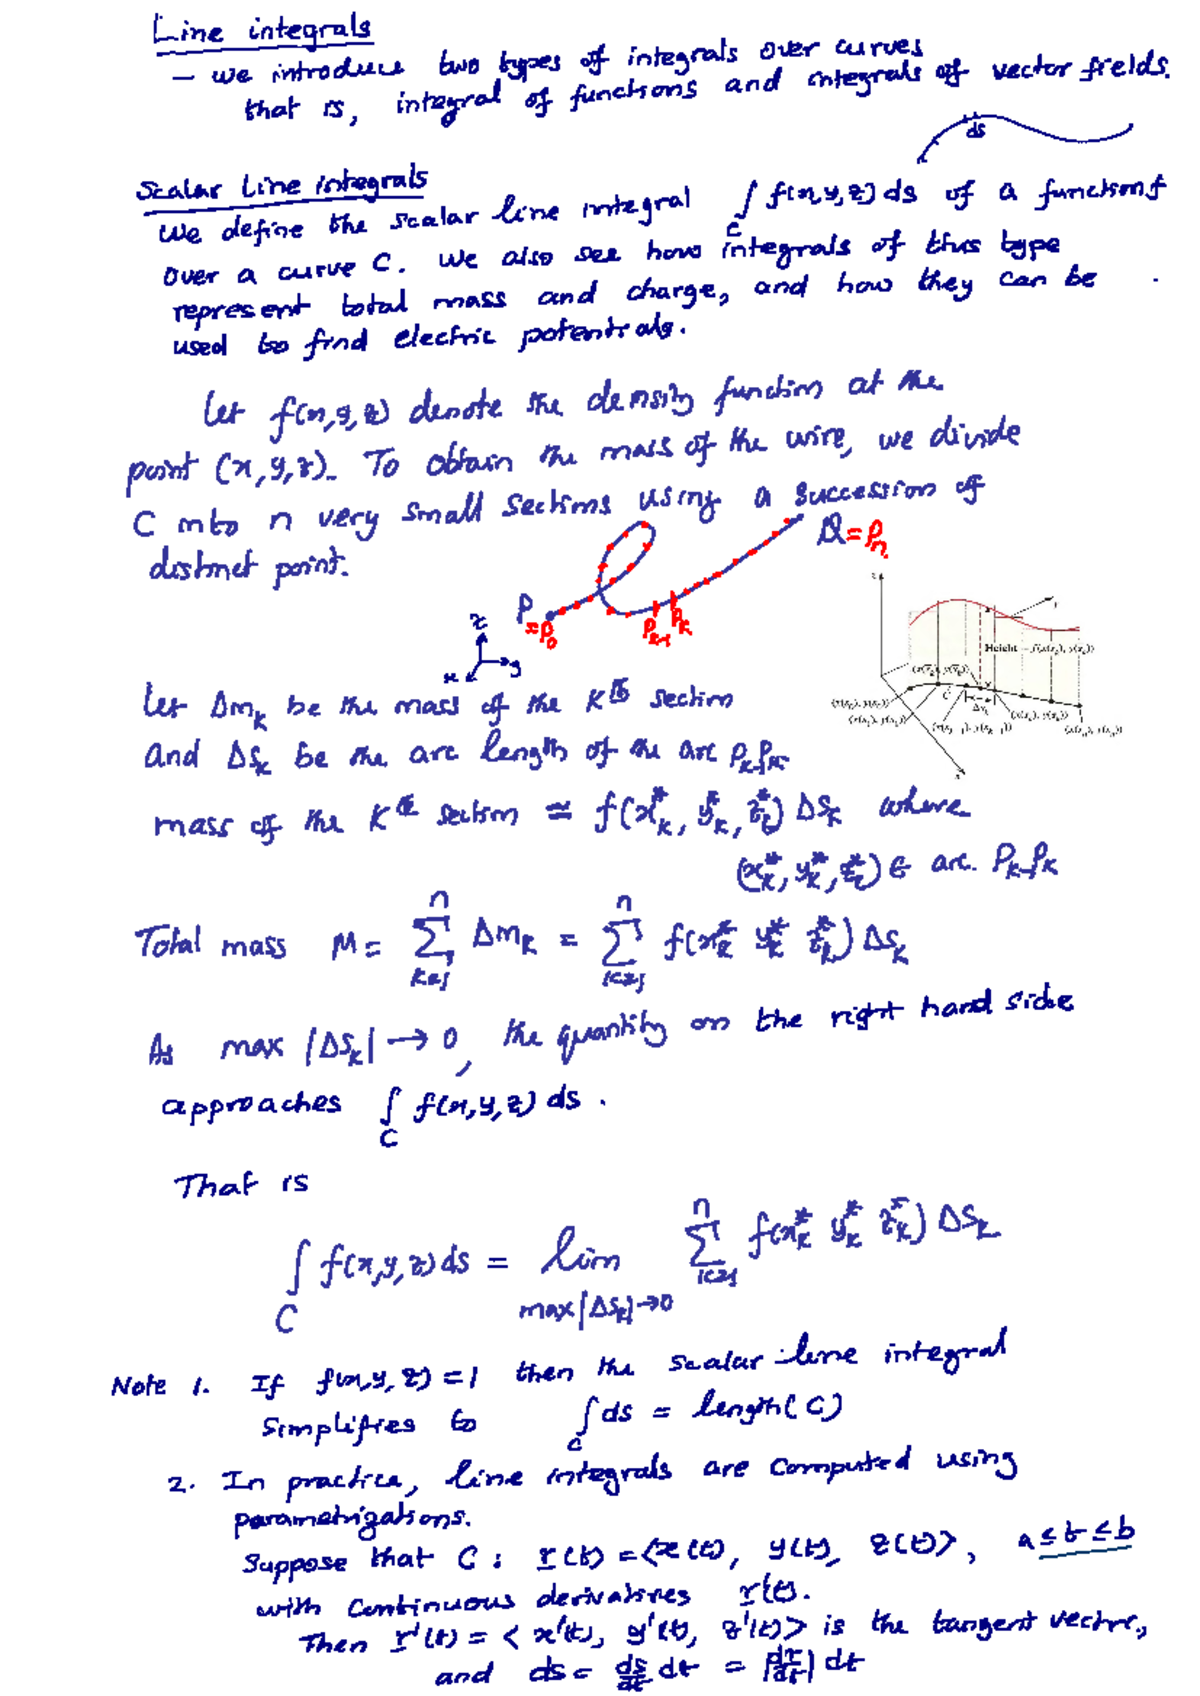 Line integrals
– we introduce two types of integrals over curves
that is, integral of functions and integrals of vector fields.
ds
Scalar Line integrals
We define the scalar line integral ∫_C f(x,y,z) ds of a function f
over a curve C. We also see how integrals of this type
represent total mass and charge, and how they can be
used to find electric potentials.
Let f(x,y,z) denote the density function at the
point (x,y,z). To obtain the mass of the wire, we divide
C into n very small sections using a succession of
distinct point.
Q = Pn
P = P0
Pk-1 Pk
z
x y
Height = f(x(t̄k), y(t̄k))
Let Δmk be the mass of the Kth section
and ΔSk be the arc length of the arc Pk-1Pk.
mass of the Kth section ≃ f(xk*, yk*, zk*) ΔSk where
(xk*, yk*, zk*) ∈ arc. Pk-1Pk
Total mass M = Σ_{k=1}^{n} Δmk = Σ_{k=1}^{n} f(xk* yk* zk*) ΔSk
As max |ΔSk| → 0, the quantity on the right hand side
approaches ∫_C f(x,y,z) ds.
That is
∫_C f(x,y,z) ds = lim_{max|ΔSk|→0} Σ_{k=1}^{n} f(xk* yk* zk*) ΔSk
Note 1. If f(x,y,z) = 1 then the scalar line integral
simplifies to ∫_C ds = length(C)
2. In practice, line integrals are computed using
parametrizations.
Suppose that C : r(t) = <x(t), y(t), z(t)>, a ≤ t ≤ b
with continuous derivatives r'(t).
Then r'(t) = < x'(t), y'(t), z'(t)> is the tangent vector,
and ds = ds/dt dt = |dr/dt| dt